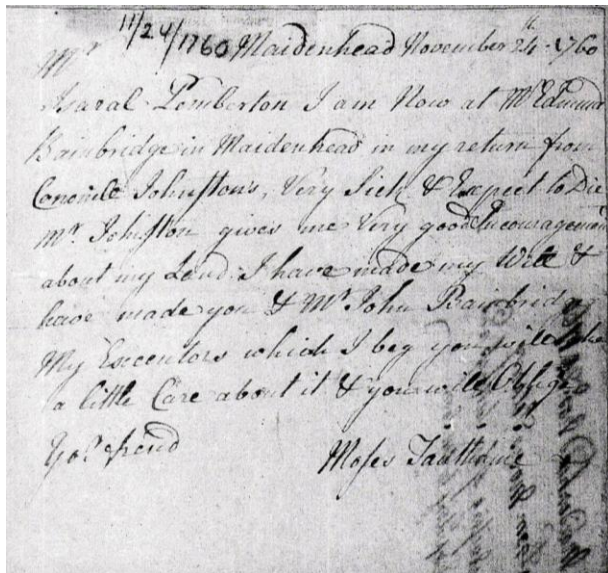 11/24/1760 Maidenhead November 24th 1760
Mr
Isaral Pemberton I am Now at Mr Edmund
Bainbridge in Maidenhead in my return from
Conornile Johnston's, Very Sick & Expect to Die
Mr. Johnston gives me Very good Encouragement
about my Land I have made my Will &
have made you & Mr John Bainbridge
My Executors which I beg you will take
a little Care about it & you will Oblige
Yor. freind
Moses